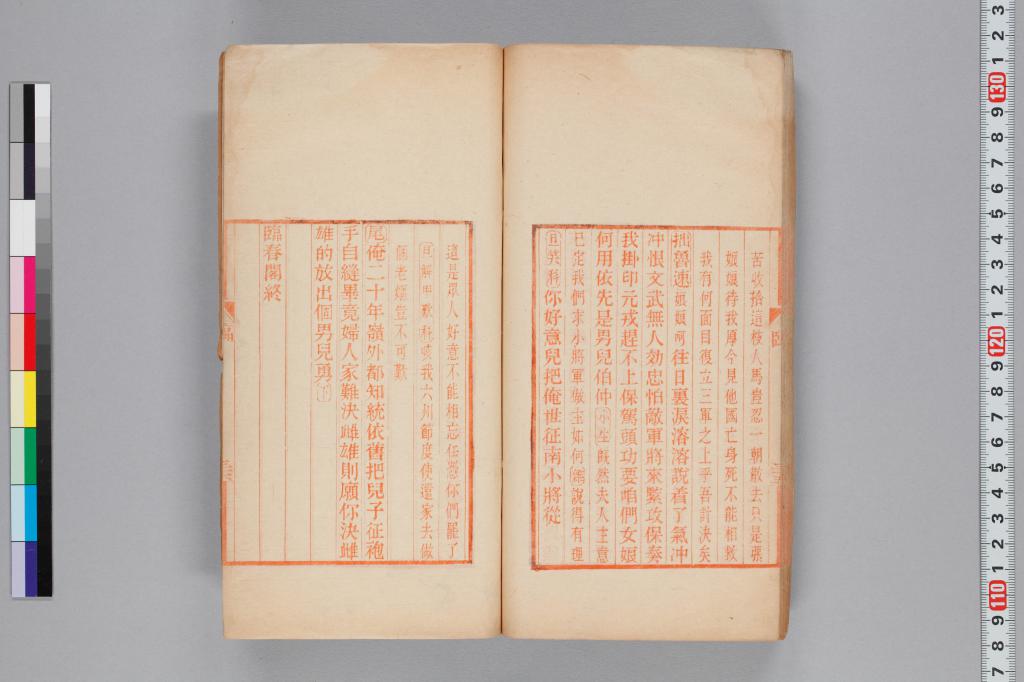 苦收拾這枝人馬豈忍一朝散去只是張
娘娘待我厚今見他國亡身死不能相救
我有何面目復立三軍之上乎吾計決矣
拙魯速娘娘呵往日裏淚溶溶説着了氣冲
冲恨文武無人効忠怕敵軍將來緊攻保奏
我掛印元戎趕不上保駕頭功要咱們女娘
何用依先是男兒伯仲小生既然夫人主意
已定我們求小將軍做主如何說得有理
旦笑科你好意兒把俺世征南小將從
這是眾人好意不能相忘任憑你們罷了
旦解甲歎科咳我六州節度使還家去做
個老嫗豈不可歎
尾俺二十年嶺外都知統依舊把兒子征袍
手自縫畢竟婦人家難決雌雄則願你決雌
雄的放出個男兒勇下
臨春閣終
3
2
1
130
9
8
7
6
5
4
3
2
1
120
9
8
7
6
5
4
3
2
1
110
9
8
7